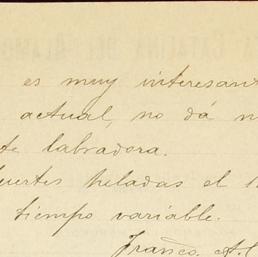 es muy interesant
actual, no dá n
te labradora.
uertes heladas el
tiempo variable.
Franco. A.